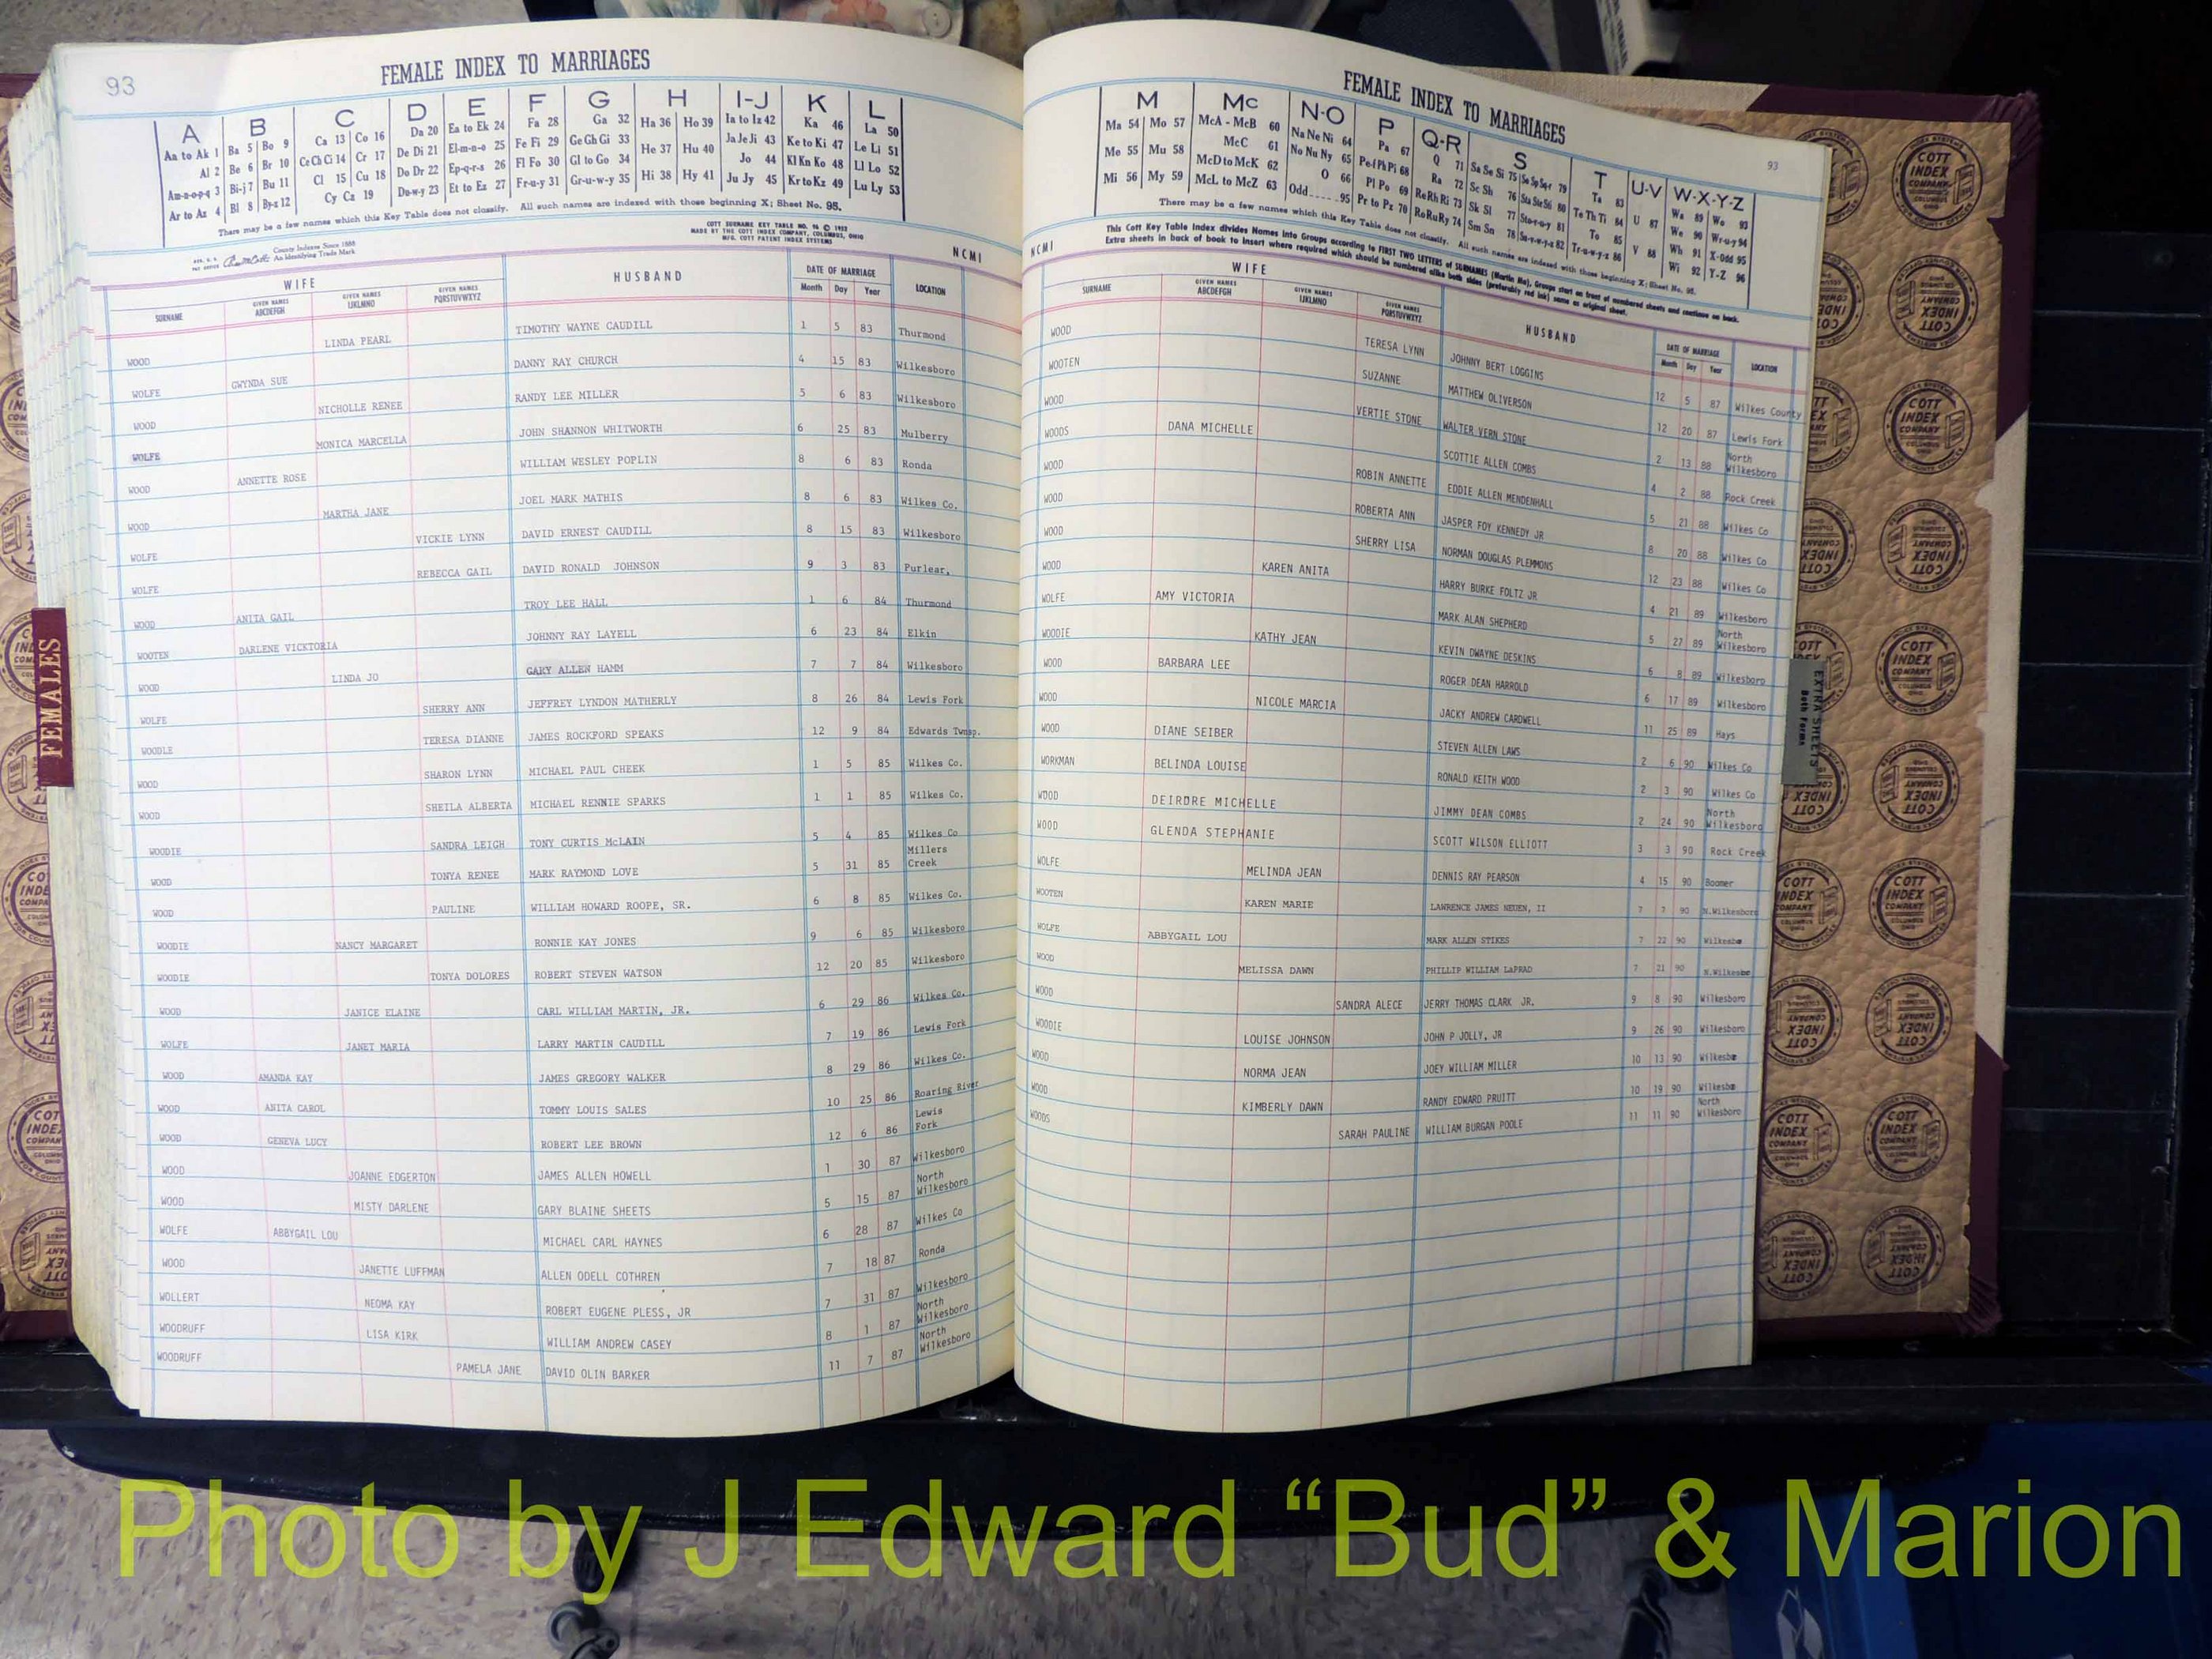 93
FEMALE INDEX TO MARRIAGES
A B C D E F G H I-J K L
Aa to Ak 1 Ba 5 Bo 9 Ca 13 Co 16 Da 20 Ea to Ek 24 Fa 28 Ga 32 Ha 36 Ho 39 Ia to Iz 42 Ka 46 La 50
Al 2 Be 6 Br 10 Ce Ch Ci 14 Cr 17 De Di 21 El-m-n-o 25 Fe Fi 29 Ge Gh Gi 33 He 37 Hu 40 Ja Je Ji 43 Ke to Ki 47 Le Li 51
Am-n-o-p-q 3 Bi-j 7 Bu 11 Cl 15 Cu 18 Do Dr 22 Ep-q-r-s 26 Fl Fo 30 Gl to Go 34 Hi 38 Hy 41 Jo 44 Kl Kn Ko 48 Ll Lo 52
Ar to Az 4 Bl 8 By-z 12 Cy Cz 19 Du-w-y 23 Et to Ez 27 Fr-u-y 31 Gr-u-w-y 35 Ju Jy 45 Kr to Kz 49 Lu Ly 53
There may be a few names which this Key Table does not classify. All such names are indexed with those beginning X; Sheet No. 95.
County Indexes Since 1888
An Identifying Trade Mark
COTT SURNAME KEY TABLE NO. 96 © 1952
MADE BY THE COTT INDEX COMPANY, COLUMBUS, OHIO
MFG. COTT PATENT INDEX SYSTEMS
NCMI
WIFE HUSBAND DATE OF MARRIAGE LOCATION
SURNAME GIVEN NAMES ABCDEFGH GIVEN NAMES IJKLMNO GIVEN NAMES PQRSTUVWXYZ Month Day Year
WOOD LINDA PEARL TIMOTHY WAYNE CAUDILL 1 5 83 Thurmond
WOLFE GWYNDA SUE DANNY RAY CHURCH 4 15 83 Wilkesboro
WOOD NICHOLLE RENEE RANDY LEE MILLER 5 6 83 Wilkesboro
WOLFE MONICA MARCELLA JOHN SHANNON WHITWORTH 6 25 83 Mulberry
WOOD ANNETTE ROSE WILLIAM WESLEY POPLIN 8 6 83 Ronda
WOOD MARTHA JANE JOEL MARK MATHIS 8 6 83 Wilkes Co.
WOLFE VICKIE LYNN DAVID ERNEST CAUDILL 8 15 83 Wilkesboro
WOLFE REBECCA GAIL DAVID RONALD JOHNSON 9 3 83 Purlear,
WOOD ANITA GAIL TROY LEE HALL 1 6 84 Thurmond
WOOTEN DARLENE VICKTORIA JOHNNY RAY LAYELL 6 23 84 Elkin
WOOD LINDA JO GARY ALLEN HAMM 7 7 84 Wilkesboro
WOLFE SHERRY ANN JEFFREY LYNDON MATHERLY 8 26 84 Lewis Fork
WOODLE TERESA DIANNE JAMES ROCKFORD SPEAKS 12 9 84 Edwards Twnsp.
WOOD SHARON LYNN MICHAEL PAUL CHEEK 1 5 85 Wilkes Co.
WOOD SHEILA ALBERTA MICHAEL RENNIE SPARKS 1 1 85 Wilkes Co.
WOODIE SANDRA LEIGH TONY CURTIS McLAIN 5 4 85 Wilkes Co
WOOD TONYA RENEE MARK RAYMOND LOVE 5 31 85 Millers Creek
WOOD PAULINE WILLIAM HOWARD ROOPE, SR. 6 8 85 Wilkes Co.
WOODIE NANCY MARGARET RONNIE KAY JONES 9 6 85 Wilkesboro
WOODIE TONYA DOLORES ROBERT STEVEN WATSON 12 20 85 Wilkesboro
WOOD JANICE ELAINE CARL WILLIAM MARTIN, JR. 6 29 86 Wilkes Co.
WOLFE JANET MARIA LARRY MARTIN CAUDILL 7 19 86 Lewis Fork
WOOD AMANDA KAY JAMES GREGORY WALKER 8 29 86 Wilkes Co.
WOOD ANITA CAROL TOMMY LOUIS SALES 10 25 86 Roaring River
WOOD GENEVA LUCY ROBERT LEE BROWN 12 6 86 Lewis Fork
WOOD JOANNE EDGERTON JAMES ALLEN HOWELL 1 30 87 Wilkesboro
WOOD MISTY DARLENE GARY BLAINE SHEETS 5 15 87 North Wilkesboro
WOLFE ABBYGAIL LOU MICHAEL CARL HAYNES 6 28 87 Wilkes Co
WOOD JANETTE LUFFMAN ALLEN ODELL COTHREN 7 18 87 Ronda
WOLLERT NEOMA KAY ROBERT EUGENE PLESS, JR 7 31 87 Wilkesboro
WOODRUFF LISA KIRK WILLIAM ANDREW CASEY 8 1 87 North Wilkesboro
WOODRUFF PAMELA JANE DAVID OLIN BARKER 11 7 87 North Wilkesboro
FEMALES
FEMALE INDEX TO MARRIAGES
93
M Mc N-O P Q-R S T U-V W-X-Y-Z
Ma 54 Mo 57 McA - McB 60 Na Ne Ni 64 Pa 67 Q 71 Sa Se Si 75 So Sp Sq-r 79 Ta 83 U 87 Wa 89 Wo 93
Me 55 Mu 58 McC 61 No Nu Ny 65 Pe-f Ph Pi 68 Ra 72 Sc Sh 76 Sta Ste Sti 80 Te Th Ti 84 V 88 We 90 Wr-u-y 94
Mi 56 My 59 McD to McK 62 O 66 Pl Po 69 Re Rh Ri 73 Sk Sl 77 Sto-r-u-y 81 To 85 Wh 91 X-Odd 95
McL to McZ 63 Odd 95 Pr to Pz 70 Ro Ru Ry 74 Sm Sn 78 Su-v-w-y-z 82 Tr-u-w-y-z 86 Wi 92 Y-Z 96
There may be a few names which this Key Table does not classify. All such names are indexed with those beginning X; Sheet No. 95.
This Cott Key Table Index divides Names into Groups according to FIRST TWO LETTERS of SURNAMES (Martin Ma), Groups start on front of numbered sheets and continue on back.
Extra sheets in back of book to insert where required which should be numbered alike both sides (preferably red ink) same as original sheet.
NCMI
WIFE HUSBAND DATE OF MARRIAGE LOCATION
SURNAME GIVEN NAMES ABCDEFGH GIVEN NAMES IJKLMNO GIVEN NAMES PQRSTUVWXYZ Month Day Year
WOOD TERESA LYNN JOHNNY BERT LOGGINS 12 5 87 Wilkes County
WOOTEN SUZANNE MATTHEW OLIVERSON 12 20 87 Lewis Fork
WOOD VERTIE STONE WALTER VERN STONE 2 13 88 North Wilkesboro
WOODS DANA MICHELLE SCOTTIE ALLEN COMBS 4 2 88 Rock Creek
WOOD ROBIN ANNETTE EDDIE ALLEN MENDENHALL 5 21 88 Wilkes Co
WOOD ROBERTA ANN JASPER FOY KENNEDY JR 8 20 88 Wilkes Co
WOOD SHERRY LISA NORMAN DOUGLAS PLEMMONS 12 23 88 Wilkes Co
WOOD KAREN ANITA HARRY BURKE FOLTZ JR 4 21 89 Wilkesboro
WOLFE AMY VICTORIA MARK ALAN SHEPHERD 5 27 89 North Wilkesboro
WOODIE KATHY JEAN KEVIN DWAYNE DESKINS 6 8 89 Wilkesboro
WOOD BARBARA LEE ROGER DEAN HARROLD 6 17 89 Wilkesboro
WOOD NICOLE MARCIA JACKY ANDREW CARDWELL 11 25 89 Hays
WOOD DIANE SEIBER STEVEN ALLEN LAWS 2 6 90 Wilkes Co
WORKMAN BELINDA LOUISE RONALD KEITH WOOD 2 3 90 Wilkes Co
WOOD DEIRDRE MICHELLE JIMMY DEAN COMBS 2 24 90 North Wilkesboro
WOOD GLENDA STEPHANIE SCOTT WILSON ELLIOTT 3 3 90 Rock Creek
WOLFE MELINDA JEAN DENNIS RAY PEARSON 4 15 90 Boomer
WOOTEN KAREN MARIE LAWRENCE JAMES NEUEN, II 7 7 90 N.Wilkesboro
WOLFE ABBYGAIL LOU MARK ALLEN STIKES 7 22 90
WOOD MELISSA DAWN PHILLIP WILLIAM LaPRAD 7 21 90
WOOD SANDRA ALECE JERRY THOMAS CLARK JR. 9 8 90 Wilkesboro
WOODIE LOUISE JOHNSON JOHN P JOLLY, JR 9 26 90 Wilkesboro
WOOD NORMA JEAN JOEY WILLIAM MILLER 10 13 90
WOOD KIMBERLY DAWN RANDY EDWARD PRUITT 10 19 90
WOODS SARAH PAULINE WILLIAM BURGAN POOLE 11 11 90 North Wilkesboro
EXTRA SHEETS
Both Forms
COTT INDEX COMPANY
Photo by J Edward “Bud” & Marion